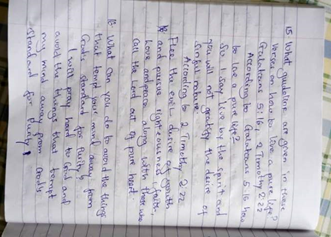 15 What guidelines are given in these
verses on how to live a pure life?
Galatians 5:16, 2 Timothy 2:22
According to Galatians 5:16 how
to live a pure life?
So I say, live by the spirit and
you will not gratify the desire of
sinful nature.
According to 2 Timothy 2:22
Flee the evil desire of youth
and pursue righteousness, faith
love and peace along with those who
call the Lord out of pure heart.
16 What can you do to avoid the things
that tempt your mind away from
God's standard for Purity?
I will pray hard to God and
avoid the things that tempt
my mind away from God's
standard for purity